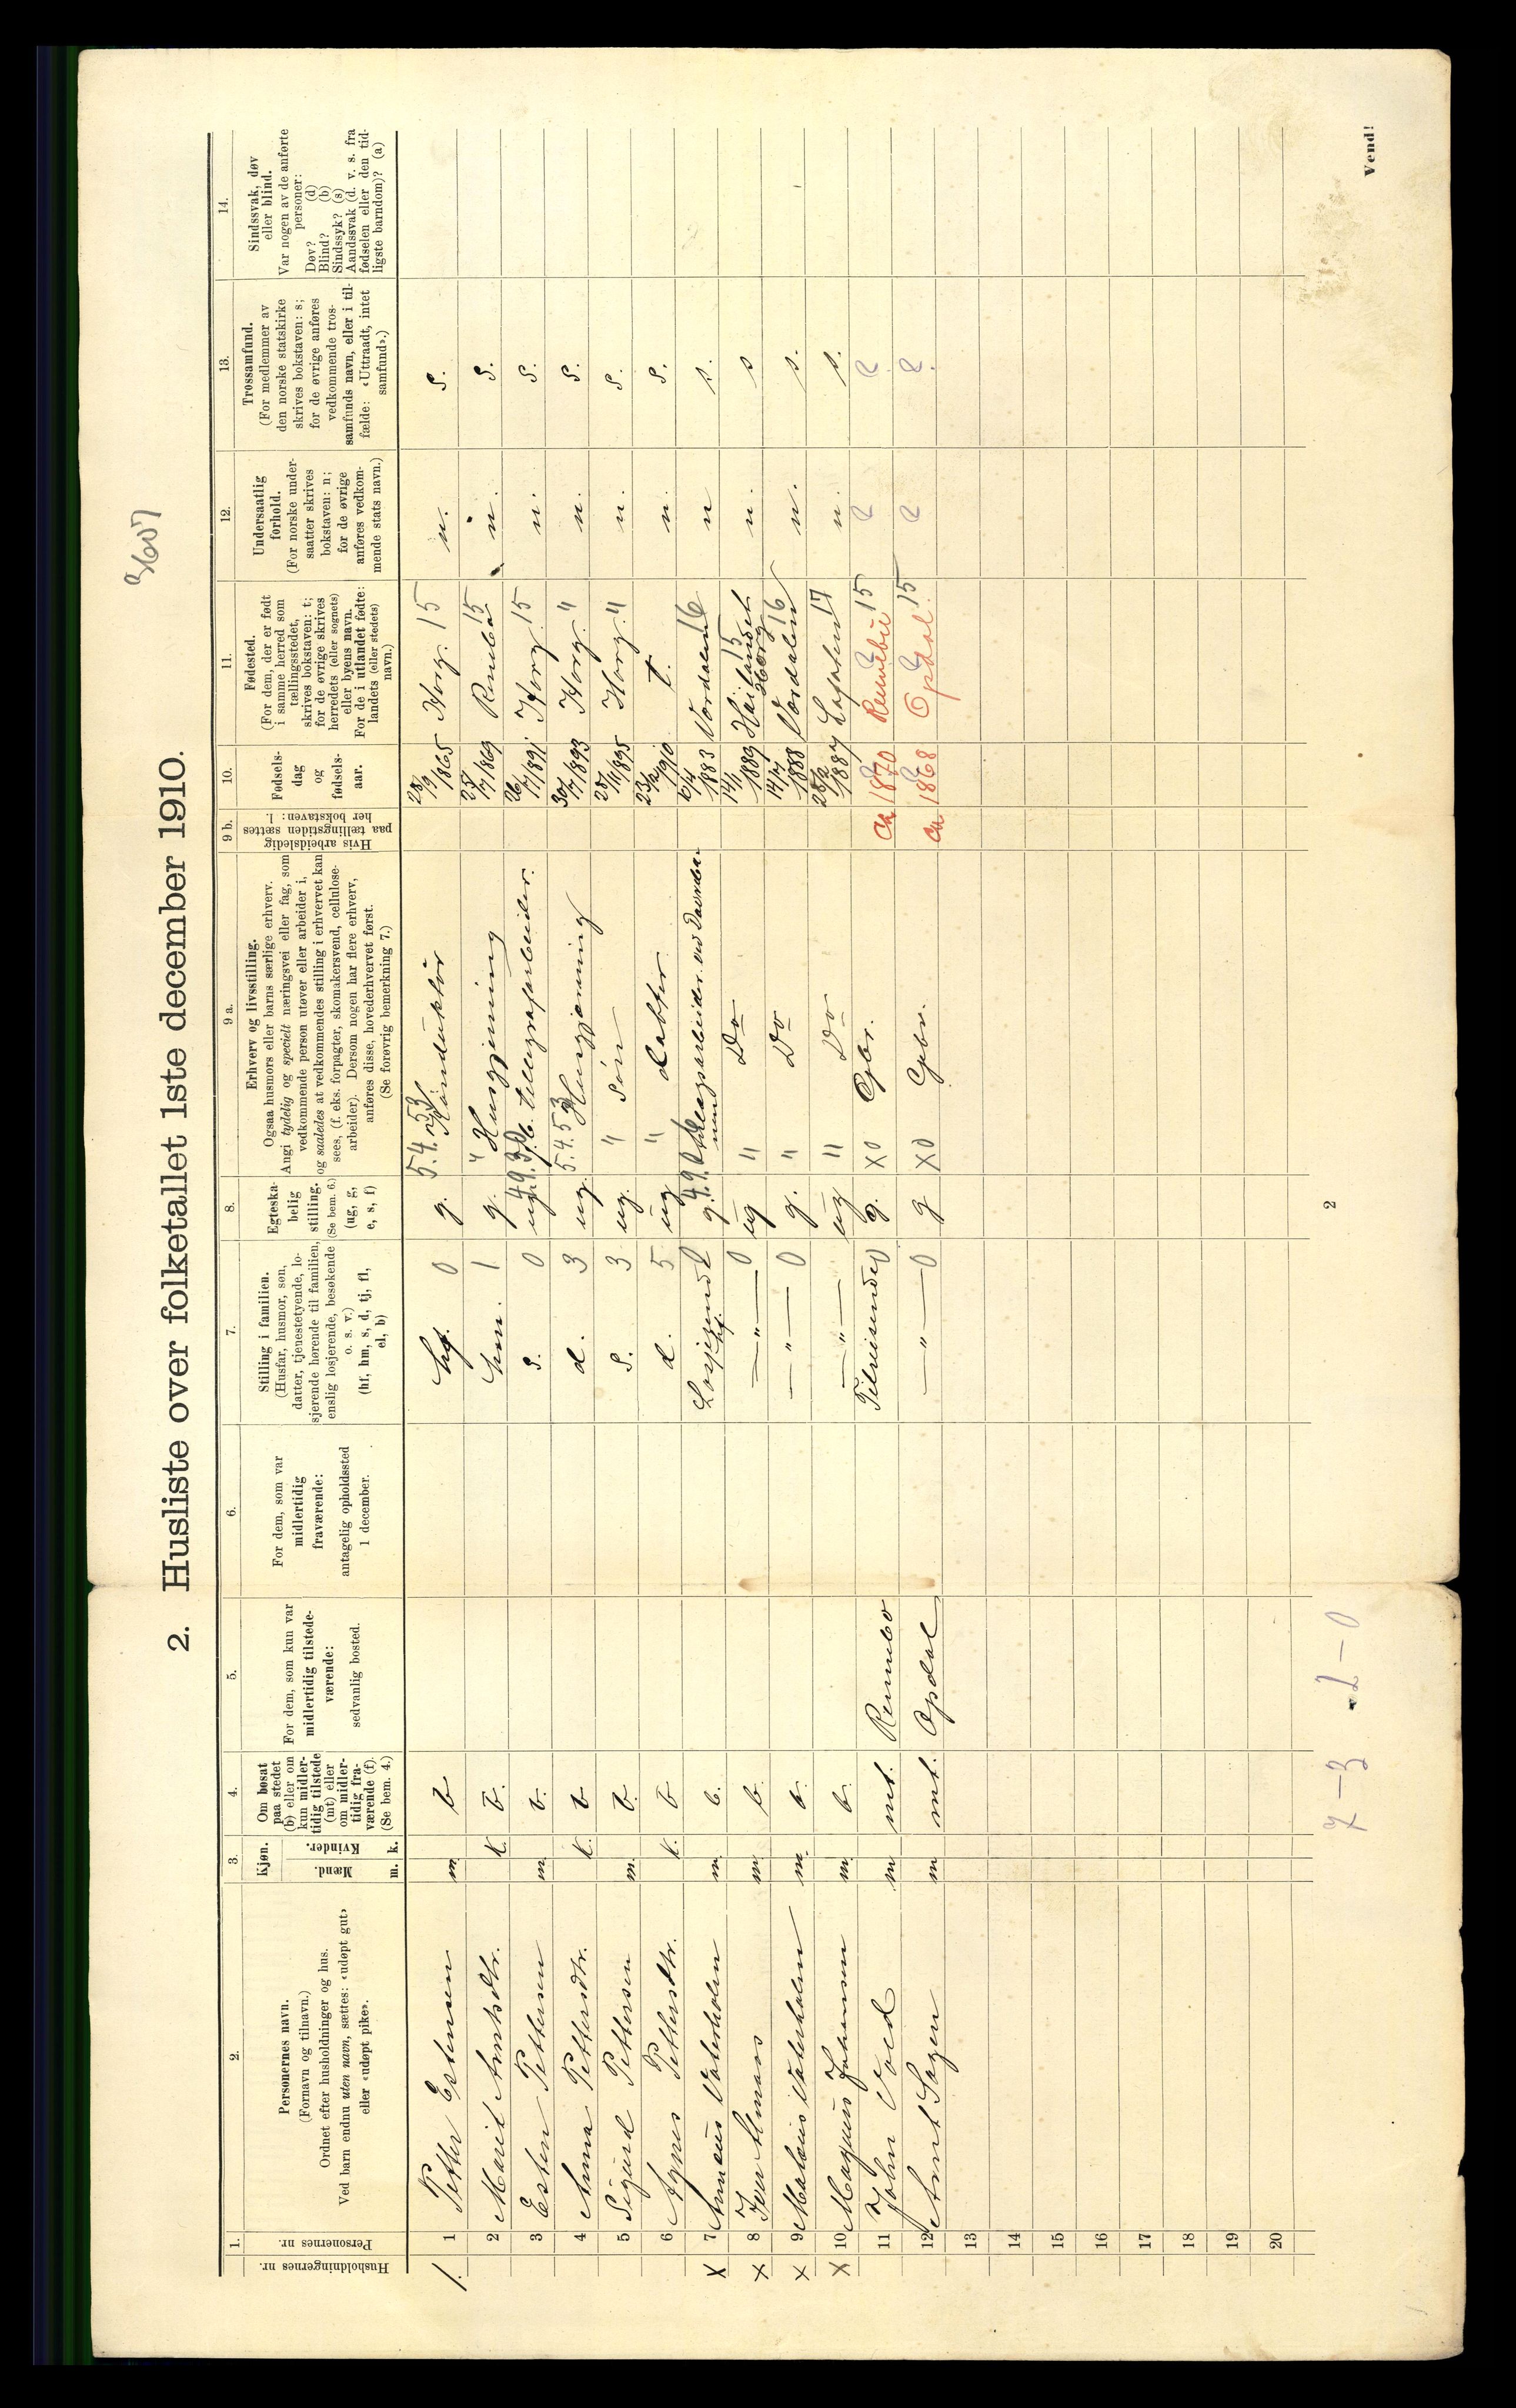 3607
2. Husliste over folketallet 1ste december 1910.
Husholdningernes nr.
1.
Personernes nr.
2.
Personernes navn.
(Fornavn og tilnavn.)
Ordnet efter husholdninger og hus.
Ved barn endnu uten navn, sættes: «udøpt gut»
eller «udøpt pike».
3.
Kjøn.
Mænd.
Kvinder.
m. k.
4.
Om bosat
paa stedet
(b) eller om
kun midler-
tidig tilstede
(mt) eller
om midler-
tidig fra-
værende (f).
(Se bem. 4.)
5.
For dem, som kun var
midlertidig tilstede-
værende:
sedvanlig bosted.
6.
For dem, som var
midlertidig
fraværende:
antagelig opholdssted
1 december.
7.
Stilling i familien.
(Husfar, husmor, søn,
datter, tjenestetyende, lo-
sjerende hørende til familien,
enslig losjerende, besøkende
o. s. v.)
(hf, hm, s, d, tj, fl,
el, b)
8.
Egteska-
belig
stilling.
(Se bem. 6.)
(ug, g,
e, s, f)
9 a.
Erhverv og livsstilling.
Ogsaa husmors eller barns særlige erhverv.
Angi tydelig og specielt næringsvei eller fag, som
vedkommende person utøver eller arbeider i,
og saaledes at vedkommendes stilling i erhvervet kan
sees, (f. eks. forpagter, skomakersvend, cellulose-
arbeider). Dersom nogen har flere erhverv,
anføres disse, hovederhvervet først.
(Se forøvrig bemerkning 7.)
9 b.
Hvis arbeidsledig
paa tællingstiden sættes
her bokstaven: l.
10.
Fødsels-
dag
og
fødsels-
aar.
11.
Fødested.
(For dem, der er født
i samme herred som
tællingsstedet,
skrives bokstaven: t;
for de øvrige skrives
herredets (eller sognets)
eller byens navn.
For de i utlandet fødte:
landets (eller stedets)
navn.)
12.
Undersaatlig
forhold.
(For norske under-
saatter skrives
bokstaven: n;
for de øvrige
anføres vedkom-
mende stats navn.)
13.
Trossamfund.
(For medlemmer av
den norske statskirke
skrives bokstaven: s;
for de øvrige anføres
vedkommende tros-
samfunds navn, eller i til-
fælde: «Uttraadt, intet
samfund».)
14.
Sindssvak, døv
eller blind.
Var nogen av de anførte
personer:
Døv? (d)
Blind? (b)
Sindssyk? (s)
Aandssvak (d. v. s. fra
fødselen eller den tid-
ligste barndom)? (a)
1. 1 Petter Estensen m. b hf. 0 g. 5.4.53 Konduktør 28/9 1865 Horg. 15 n. s.
2 Marit Arntsdtr. k. b. hm. 1 g. " Husgjerning 1869 Rennebu 15 n. s.
3 Esten Pettersen m b. s. 0 ug. telegrafarbeider. 26/7 1891 Horg. 15 n. s.
4 Anna Pettersdtr. k. b d. 3 ug. 5.4.53 Husgjerning 30/7 1893 Horg. " n. s.
5 Sigurd Pettersen m. b. s. 3 ug. " søn 1895 Horg. " n. s.
6 Agnes Pettersdtr. k. b d. 5 ug " datter 23/12 1910 t. n. s.
x 7 Vaterholm m. b. Losjerende g. 6/4 1883 Værdalen 16 n s.
x 8 Iver m b. — " — 0 ug " Do 14/1 1889 15 n. s
x 9 Vaterholm m. b. — " — 0 g. " Do 14/7 1888 Værdalen 16 n. s.
x 10 Magnus Johansen m b. — " — ug " Do 1887 17 n. s.
11 John Vold m mt. Rennebo Tilreisende 0 g. x0 Gbr. ca 1870 Rennebu 15
12 Arnt Hagen m mt. Opdal — " — 0 g x0 Gbr. ca 1868 Opdal 15
13
14
15
16
17
18
19
20
7 — 3 2 — 0
2
Vend!